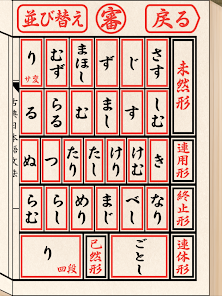 並び替え 審 戻る
未然形 さす じ ず まほし むず り サ変
しむ す まし む らる る
連用形 き けむ けり たし たり つ ぬ
終止形 なり べし まじ めり らし らむ
連体形 ごとし 已然形 り 四段
古典日本語文法